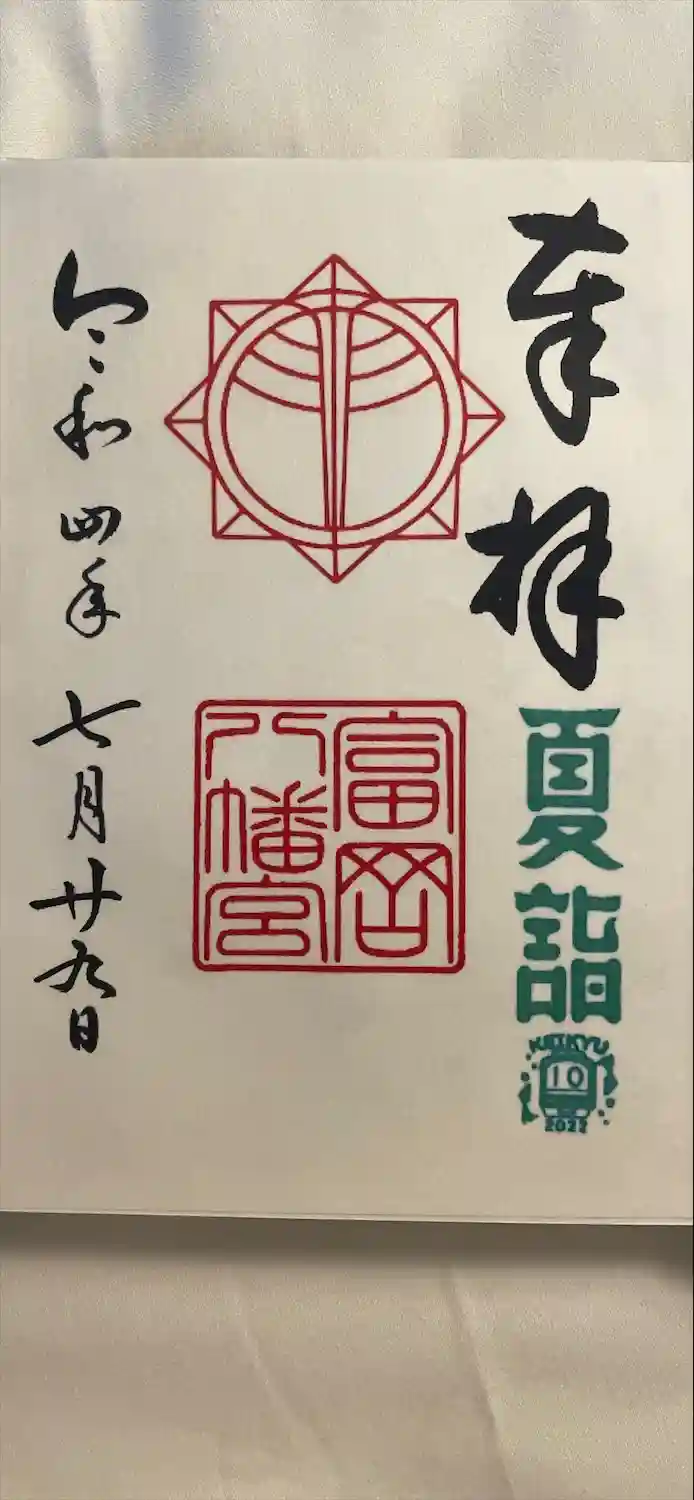 奉拝
夏詣
KEIKYU
10
2022
富岡
八幡宮
令和四年七月廿九日